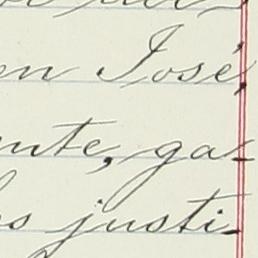 en José,
nte, ga-
s justi-